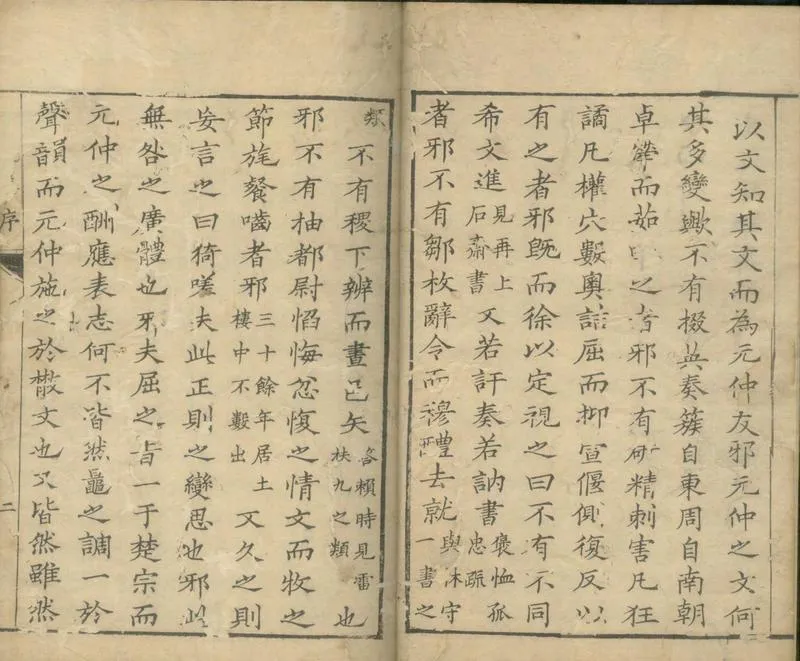 以文知其文而為元仲友邪元仲之文何
其多變歟不有掇英奏簇自東周自南朝
卓犖而茹之者邪不有研精刺害凡狂
譎凡權穴數奧詰屈而抑宣偃側復反以
有之者邪旣而徐以定視之曰不有不同
希文進見再上石齋書又若訐奏若訥書褒恤孤忠疏
者邪不有鄒枚辭令而穆醴去就與沐守一書之
類不有稷下辨而晝已矣各賴時見雷扶九之類也
邪不有柚都尉慆悔忿愎之情文而牧之
節旄餐嚙者邪三十餘年居土樓中不數出又久之則
妄言之曰猗嗟夫此正則之變思也邪此
無咎之廣體也邪夫屈之旨一于楚宗而
元仲之酬應表志何不皆然鼂之調一於
聲韻而元仲施之於散文也又皆然雖然
序
二